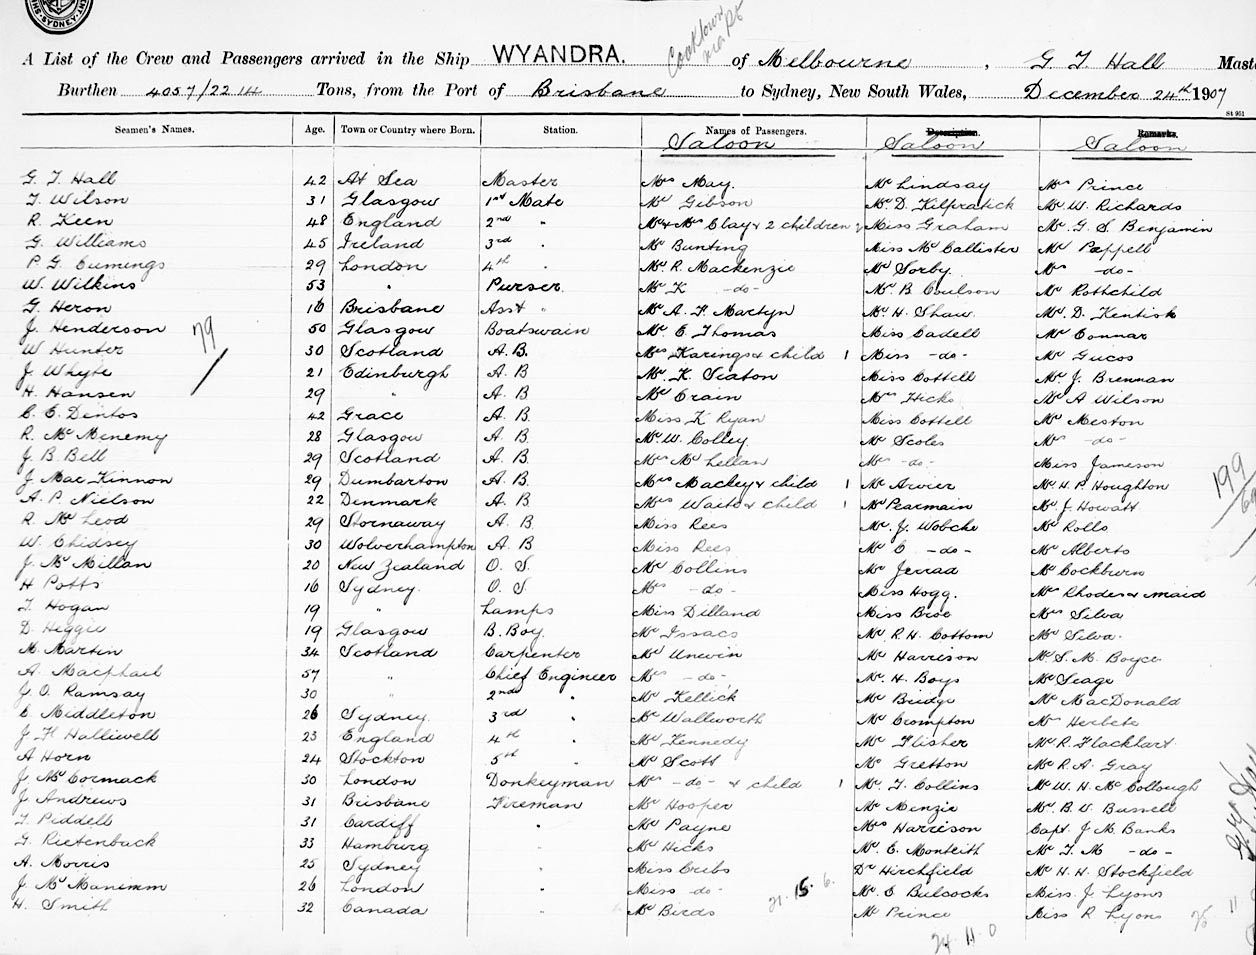 SYDNEY
Cooktown
via Pts
A List of the Crew and Passengers arrived in the Ship WYANDRA. of Melbourne, G. T. Hall Maste
Burthen 4057/22 14 Tons, from the Port of Brisbane to Sydney, New South Wales, December 24th 1907
St 951
Seamen's Names. Age. Town or Country where Born. Station. Names of Passengers. Description. Remarks.
Saloon Saloon Saloon
G. T. Hall 42 At Sea Master Mrs May. Mr Lindsay Mrs Prince
T. Wilson 31 Glasgow 1st Mate Mr Gibson Mr. D. Kilpratick Mr W. Richards
R. Keen 48 England 2nd " Mr & Mrs Clay & 2 children 2 Miss Graham Mr G. S. Benjamin
G. Williams 45 Ireland 3rd " Mr Bunting Miss McCallister Mr Pappell
P. G. Cumings 29 London 4th " Mr. R. Mackenzie Mr Sorby Mrs -do-
W. Wilkins 53 " Purser Mr K -do- Mr. B Coulson Mr Rothchild
G. Heron 16 Brisbane Asst " Mr A. F. Martyn Mr H. Shaw Mr. D. Kentish
J. Henderson 50 Glasgow Boatswain Mr E Thomas Miss Cadell Mr Connar
79
W Hunter 30 Scotland A. B. Mrs Karings & child 1 Miss -do- Mr Gucos
J. Whyte 21 Edinburgh A. B Mr. K. Seaton Miss Cottell Mr J. Brennan
H. Hansen 29 " A. B Mr Crain Mrs Hicks Mr A Wilson
C. E. Dentos 42 Grace A. B. Miss K Ryan Miss Cottell Mr Meston
R. McMenemy 28 Glasgow A. B. Mr W. Colley Mr Scoles Mrs -do-
J. B. Bell 29 Scotland A. B. Mrs McLellan Mrs -do- Miss Jameson
J. MacKinnon 29 Dumbarton A. B. Mrs Mackey & child 1 Mr Arvier Mr. H. P. Houghton
199
A. P. Nielson 22 Denmark A. B. Mrs Waite & child 1 Mr Pearmain Mr J. Howatt
R. McLeod 29 Stornaway A. B. Miss Rees Mr. J. Wobcke Mr Rolls
W. Chidsey 30 Wolverhampton A. B Miss Rees Mr C -do- Mr Alberts
J. McMillan 20 New Zealand O. S. Mr Collins Mr Jerrad Mr Cockburn
H Potts 16 Sydney O. S. Mrs -do- Miss Hogg. Mrs Rhodes & maid
T. Hogan 19 " Lamps Miss Dilland Miss Broe Mrs Silva
D. Heggie 19 Glasgow B. Boy. Mr Issacs Mr. R. H. Cottom Mr Silva
M. Martin 34 Scotland Carpenter Mr Unewin Mr Harrison Mr S. M. Boyce
A. Macphail 57 " Chief Engineer Mrs -do- Mr. H. Boys Mr Seage
J. O. Ramsay 30 " 2nd " Mr Kellick Mr Bridge Mr MacDonald
E. Middleton 26 Sydney 3rd " Mr Wallworth Mr Crompton Mrs Herbete
J. H Halliwell 23 England 4th " Mr Kennedy Mr Flisher Mr R. Flackhart
A Horn 24 Stockton 5th " Mr Scott Mr Gretton Mr R. A. Gray
J. McCormack 30 London Donkeyman Mrs -do- & child 1 Mr. T. Collins Mr W. H. McCollough
J. Andrews 31 Brisbane Fireman Mr Hooper Mr Menzie Mr. B. W. Bussell
T. Piddell 31 Cardiff " Mr Payne Mrs Harrison Capt. J. M. Banks
G. Rietenback 33 Hamburg " Mr Hicks Mr. E. Monteith Mr T. M -do-
A. Morris 25 Sydney " Miss Cribs Dr Hirchfield Mr H. H. Stockfield
J. McManimm 26 London " Miss -do- Mr. E Bulcocks Miss. J Lyons
H. Smith 32 Canada " Mr Birds Mr Prince Miss R Lyons
21. 15. 6.
24. 11. 0